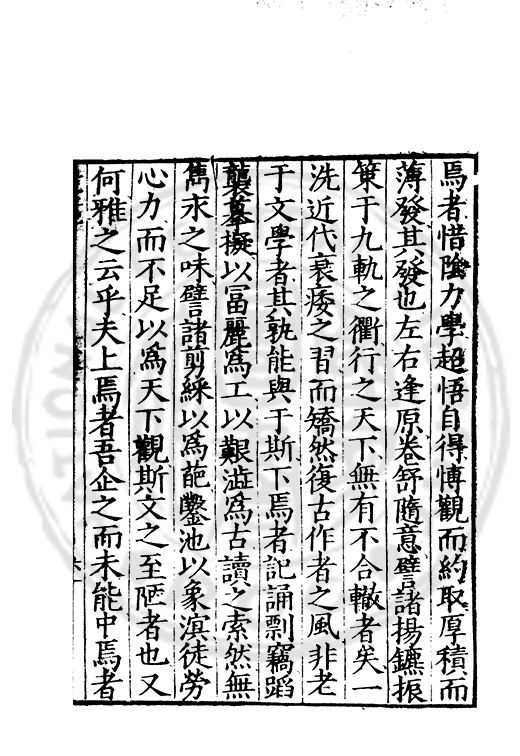 焉者惜陰力學超悟自得博觀而約取厚積而
薄發其發也左右逢原卷舒隨意譬諸揚鑣振
筞于九軌之衢行之天下無有不合轍者矣一
洗近代衰痿之習而矯然復古作者之風非老
于文學者其孰能與于斯下焉者記誦剽竊蹈
襲摹擬以冨麗爲工以艱澁爲古讀之索然無
雋永之味譬諸剪綵以爲葩鑿池以象滇徒勞
心力而不足以爲天下觀斯文之至陋者也又
何雅之云乎夫上焉者吾企之而未能中焉者